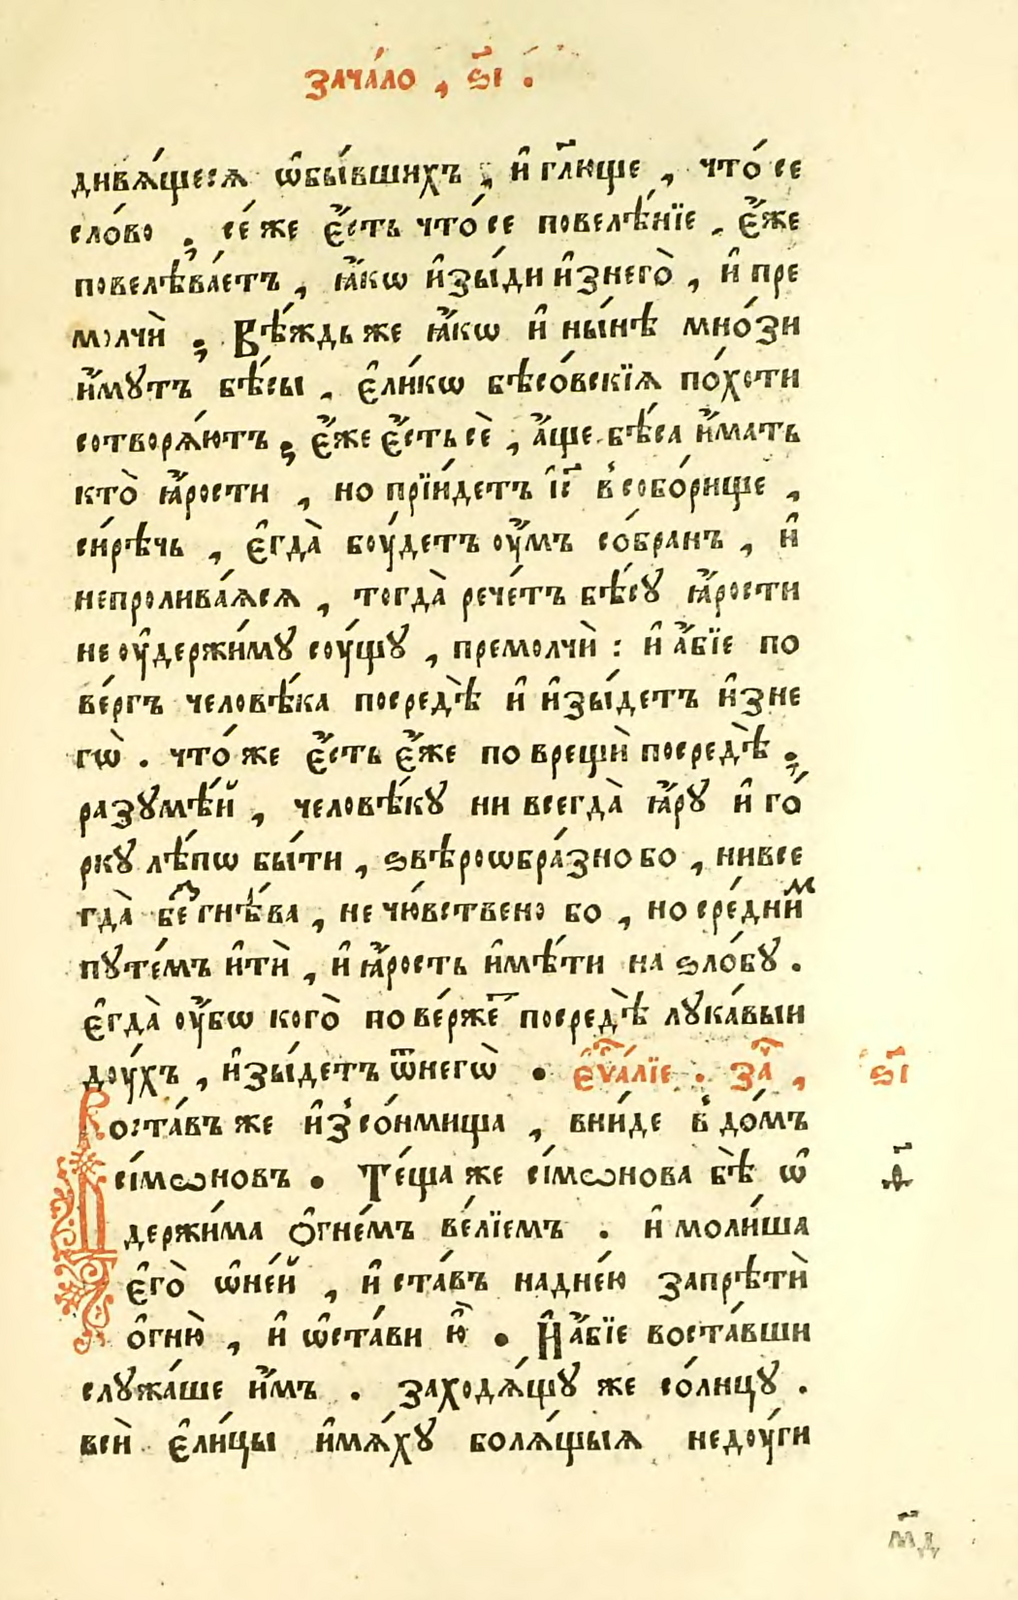 зача́ло , ѕ҃і .
дивѧ́щесѧ ѡ҆бы́вшихъ , и҆ гл҃юще , что́ се
сло́во . се́ же є҆́сть что́ се повелѣ́нїе , є҆́же
повелѣва́етъ , ꙗ҆́кѡ и҆зы́ди и҆знего̀ , и҆ пре
молчѝ ; Вѣ́ждь же ꙗ҆́кѡ и҆ ны́нѣ мно́зи
и҆́мꙋтъ бѣ́сы , є҆ли́кѡ бѣсо́вскїѧ по́хоти
сотворѧ́ютъ ; є҆́же є҆́сть сѐ , а҆́ще бѣ́са и҆́мать
кто̀ ꙗ҆́рости , но прїи́детъ і҆с҃ в̾собо́рище ,
си́рѣчь , є҆гда̀ боу́детъ оу҆́мъ со́бранъ , и҆
непролива́ѧсѧ , тогда̀ рече́тъ бѣ́сꙋ ꙗ҆́рости
не оу҆держи́мꙋ соу́щꙋ , премолчѝ : и҆ а҆́бїе по
ве́ргъ человѣ́ка посредѣ̀ и҆ и҆зы́детъ и҆зне
гѡ̀ . что́ же є҆́сть є҆́же по врещѝ посредѣ̀ ;
разꙋмѣ́й , человѣ́кꙋ ни всегда̀ ꙗ҆́рꙋ и҆ го́
ркꙋ лѣ́пѡ бы́ти , ѕвѣ́роѡбра́зно бо , нивсе
гда̀ беⷥ гнѣ́ва , не чю́вствено бо , но сре́дниⷨ
пꙋте́мъ и҆тѝ , и҆ ꙗ҆́рость и҆мѣ́ти на ѕло́бꙋ .
є҆гда̀ оу҆́бѡ кого̀ по ве́ржеⷮ посредѣ̀ лꙋка́выи
доу́хъ , и҆зы́детъ ѿнегѡ̀ . є҆ѵⷢ҇а́лїе . заⷱ҇ , ѕ҃і
Воста́въ же и҆з̾со́нмища , вни́де в̾ до́мъ
сі́мѡновъ . Те́ща же сі́мѡнова бѣ̀ ѡ҆
держи́ма ѻ҆гне́мъ ве́лїемъ . и҆ моли́ша
є҆го̀ ѡ҆не́й , и҆ ста́въ надне́ю запрѣтѝ
ѻ҆гню̀ , и҆ ѡ҆ста́ви ю҆̀ . И҆ а҆́бїе воста́вши
слꙋжа́ше и҆́мъ . заходѧ́щꙋ же со́лнцꙋ .
всѝ є҆ли́цы и҆мѧ́хꙋ болѧ́щыѧ недоу́ги
м҃д